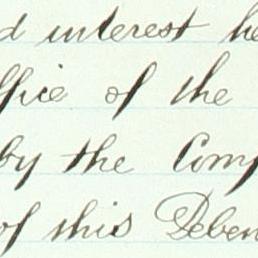 d interest he
ffice of the
by the Comp
of this Deben